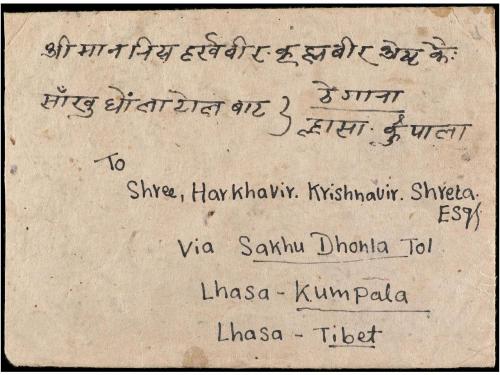 श्री मान निय हर्खवीर. कृष्णवीर श्रेष्ठ के:
साँखु धोंला टोल बाट } ठेगाना
ल्हासा. कुंपाला
To
Shree, Harkhavir. Krishnavir. Shreta.
ESq/
Via Sakhu Dhonla Tol
Lhasa - Kumpala
Lhasa - Tibet